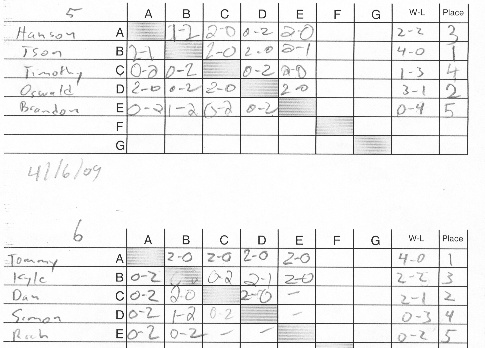 5 A B C D E F G W-L Place
Hanson A 1-2 2-0 0-2 2-0 2-2 3
Ison B 2-1 2-0 2-0 2-1 4-0 1
Timothy C 0-2 0-2 0-2 2-0 1-3 4
Oswald D 2-0 0-2 2-0 2-0 3-1 2
Brandon E 0-2 1-2 0-2 0-2 0-4 5
F
G
6 A B C D E F G W-L Place
Tommy A 2-0 2-0 2-0 2-0 4-0 1
Kyle B 0-2 0-2 2-1 2-0 2-2 3
Dan C 0-2 2-0 2-0 – 2-1 2
Simon D 0-2 1-2 0-2 – 0-3 4
E 0-2 0-2 – – 0-2 5